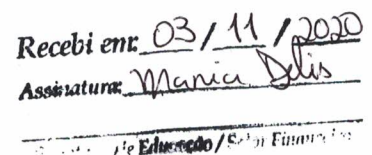 Recebi em: 03 / 11 / 2020
Assinatura: Maria Delis
de Educação / Setor Financeiro